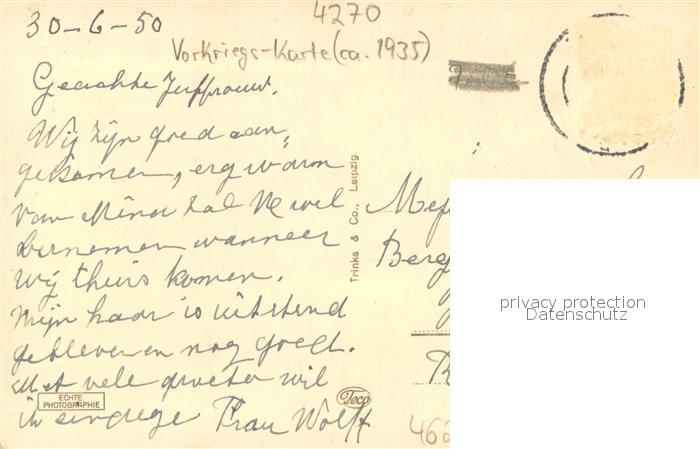 30-6-50
4270
Vorkriegs-Karte (ca. 1935)
Geachte Juffrouw.
Wij zijn goed aan,
gekomen, erg warm
van Mina zal U wel
vernemen wanneer
wij thuis komen.
Mijn haar is uitstend
gebleven en nog goed.
Met vele groeten wil
ik eindige Frau Wolff
Trinks & Co., Leipzig.
ECHTE
PHOTOGRAPHIE
Deco
Mej
Berg
privacy protection
Datenschutz